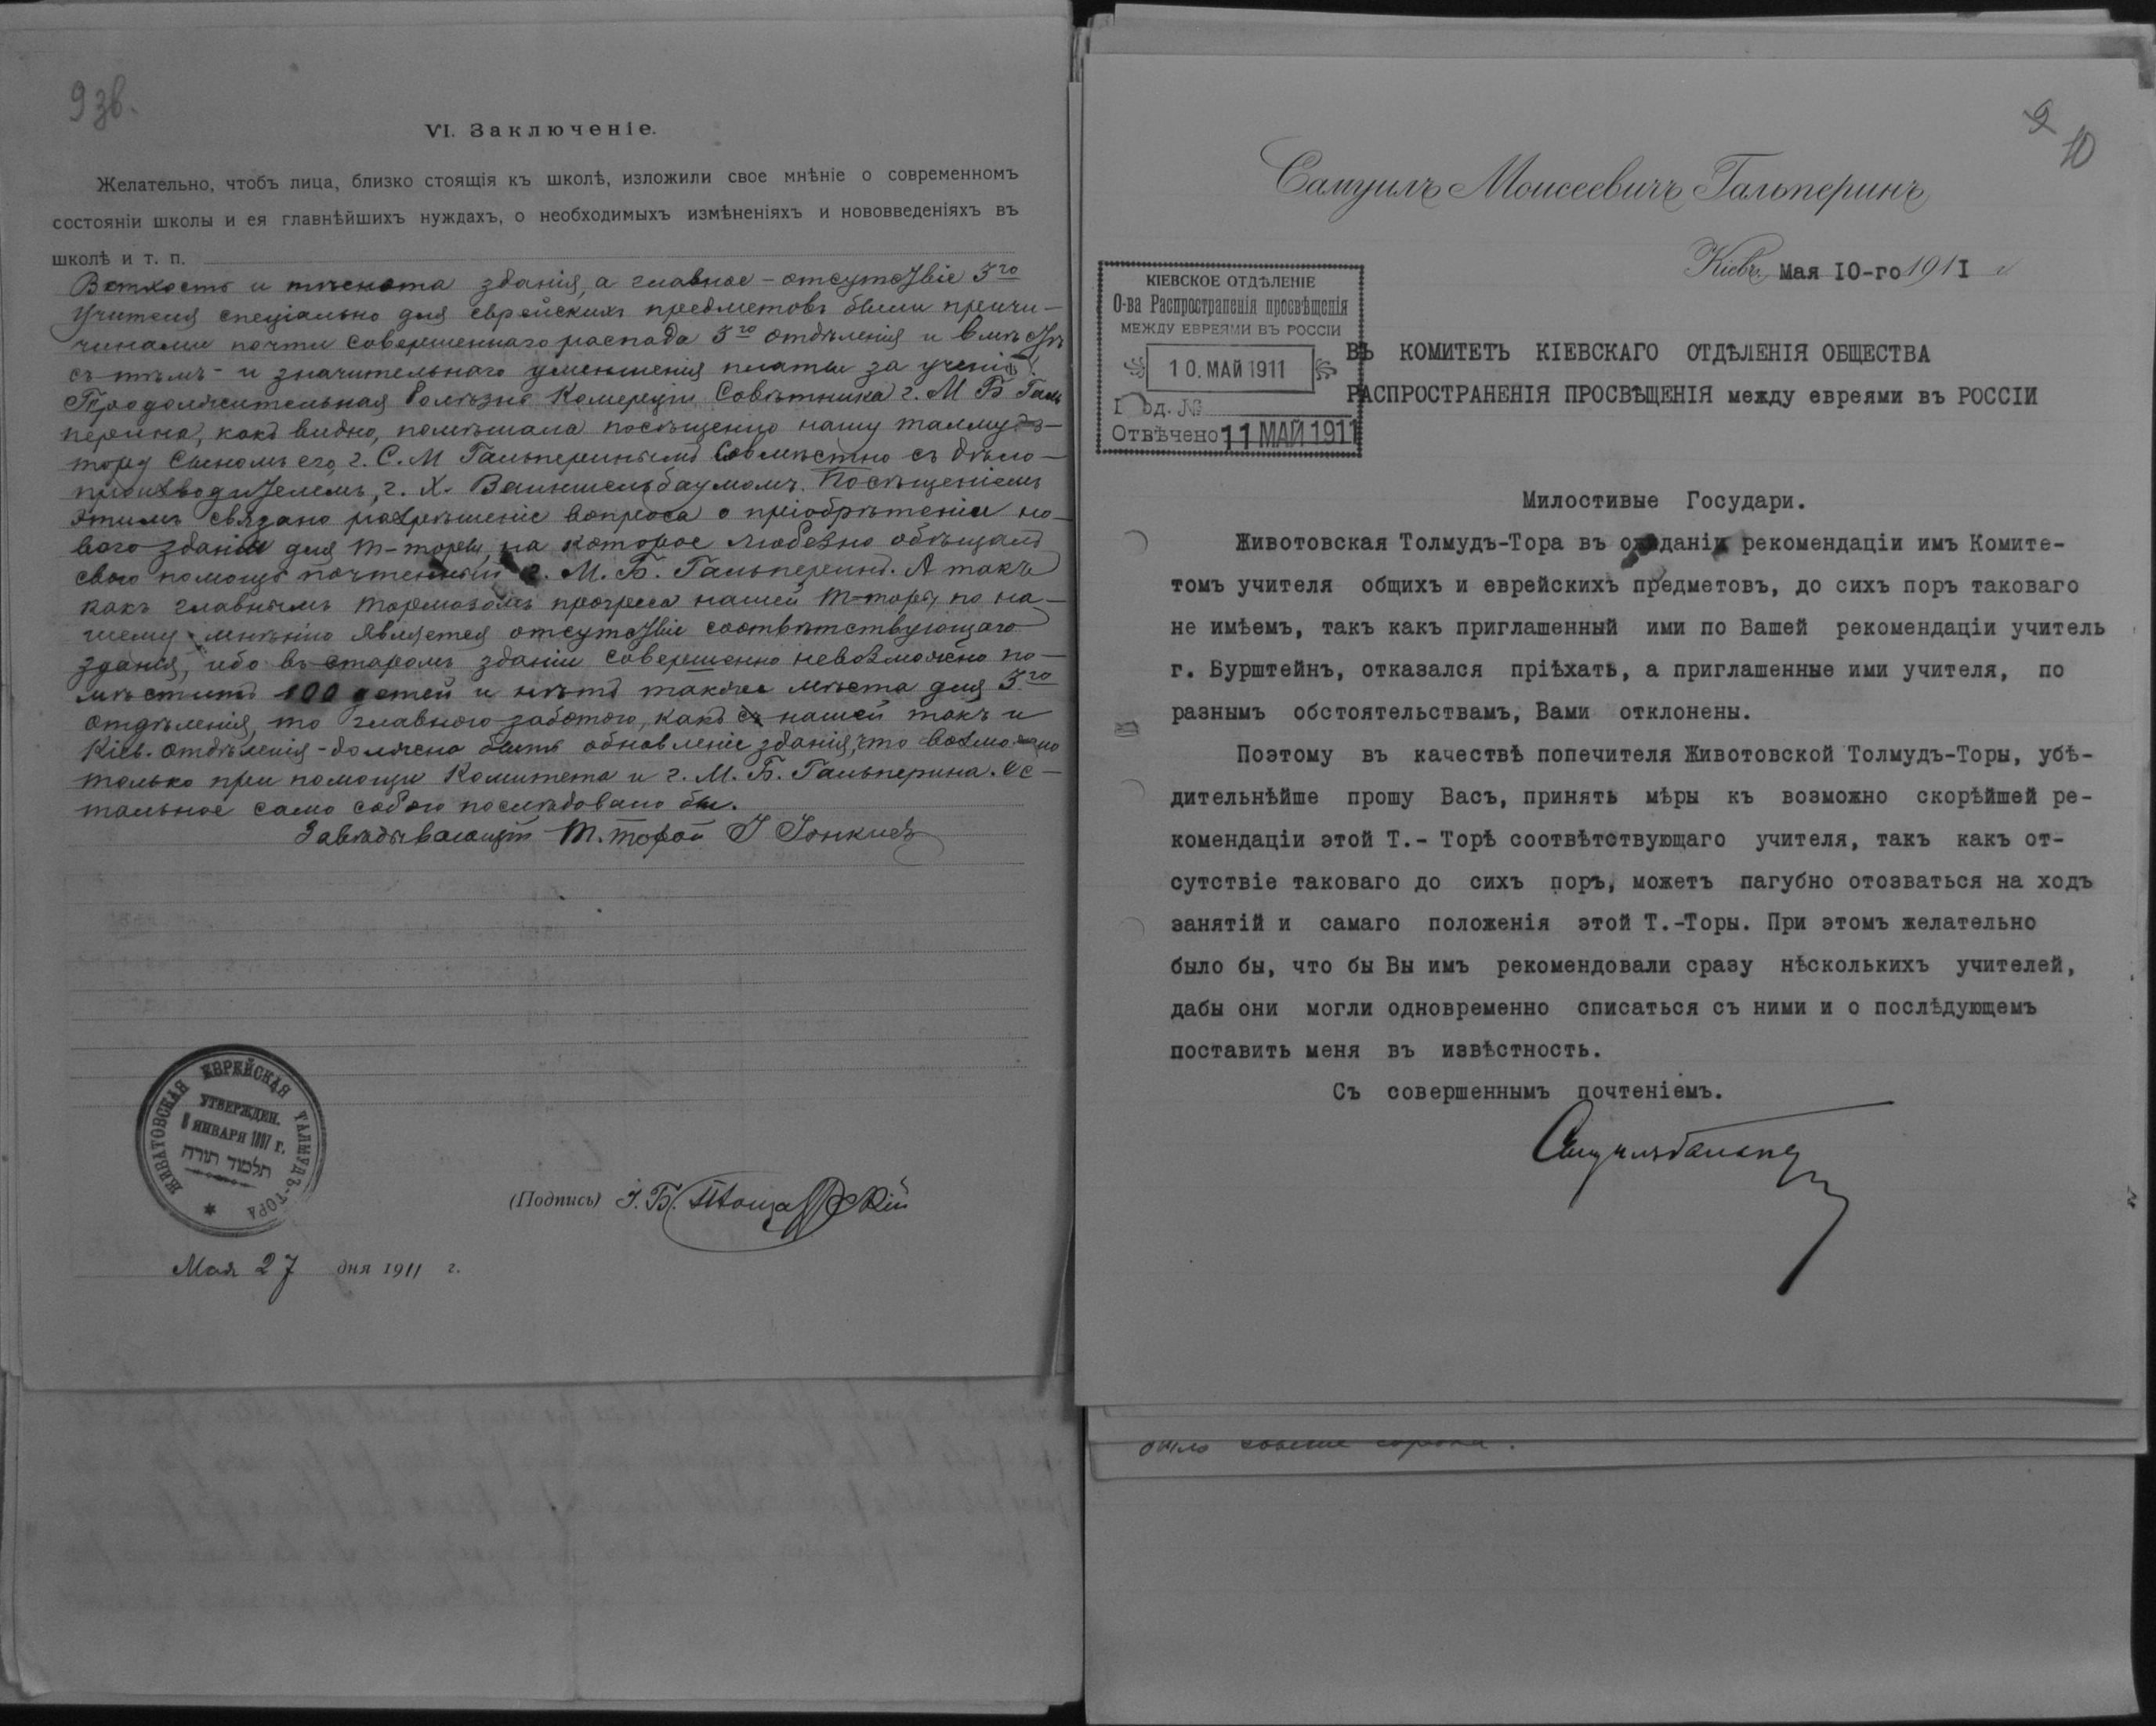 9 зв.
VI. Заключеніе.
Желательно, чтобъ лица, близко стоящія къ школѣ, изложили свое мнѣніе о современномъ
состояніи школы и ея главнѣйшихъ нуждахъ, о необходимыхъ измѣненіяхъ и нововведеніяхъ въ
школѣ и т. п.
Ветхость и тѣснота зданія, а главное - отсутствіе 3го
учителя спеціально для еврейскихъ предметовъ были причи-
чинами почти совершеннаго распада 3го отдѣленія и вмѣстѣ
съ тѣмъ - и значительнаго уменьшенія платы за ученіе.
Продолжительная болѣзнь Комерціи Совѣтника г. М Б Галь
перина, какъ видно, помѣшала посѣщенію нашу талмудъ-
тору сыномъ его, г. С. М Гальпериным совмѣстно съ дѣло-
производителемъ, г. Х. Ваинштельбаумомъ. Посѣщеніемъ
этимъ связано разрѣшеніе вопроса о пріобрѣтеніи но-
вого зданія для т-торы, на которое любезно обѣщалъ
свою помощь почтенный г. М. Б. Гальперинъ. А такъ
какъ главнымъ тормозомъ прогресса нашей т-торы, по на-
шему мнѣнію является отсутствіе соотвѣтствующаго
зданія, ибо въ старомъ зданіи совершенно невозможно по-
мѣстить 100 детей и нѣтъ также мѣста для 3го
отдѣленія, то главною заботою, какъ нашей такъ и
Кіев. отдѣленія - должена быть обновленіе зданія, что возможно
только при помощи Комитета и г. М. Б. Гальперина. Ос-
тальное само собою послѣдовало бы.
Завѣдывающій Т. торой
ЖИВАТОВСКАЯ ЕВРЕЙСКАЯ ТАЛМУДЪ-ТОРА
УТВЕРЖДЕН.
8 ЯНВАРЯ 1897 г.
תלמוד תורה
(Подпись) І. Б.
Мая 27 дня 1911 г.
9
10
Самуилъ Моисеевичъ Гальперинъ
Кіевъ, Мая 10-го 1911 г
КІЕВСКОЕ ОТДѢЛЕНІЕ
О-ва Распространенія просвѣщенія
МЕЖДУ ЕВРЕЯМИ ВЪ РОССІИ
10. МАЙ 1911
Вход. №
Отвѣчено 11 МАЙ 1911
ВЪ КОМИТЕТЪ КІЕВСКАГО ОТДѢЛЕНІЯ ОБЩЕСТВА
РАСПРОСТРАНЕНІЯ ПРОСВѢЩЕНІЯ между евреями въ РОССІИ
Милостивые Государи.
Животовская Толмудъ-Тора въ ожиданіи рекомендаціи имъ Комите-
томъ учителя общихъ и еврейскихъ предметовъ, до сихъ поръ таковаго
не имѣемъ, такъ какъ приглашенный ими по Вашей рекомендаціи учитель
г. Бурштейнъ, отказался пріѣхать, а приглашенные ими учителя, по
разнымъ обстоятельствамъ, Вами отклонены.
Поэтому въ качествѣ попечителя Животовской Толмудъ-Торы, убѣ-
дительнѣйше прошу Васъ, принять мѣры къ возможно скорѣйшей ре-
комендаціи этой Т.- Торѣ соотвѣтствующаго учителя, такъ какъ от-
сутствіе таковаго до сихъ поръ, можетъ пагубно отозваться на ходъ
занятій и самаго положенія этой Т.-Торы. При этомъ желательно
было бы, что бы Вы имъ рекомендовали сразу нѣсколькихъ учителей,
дабы они могли одновременно списаться съ ними и о послѣдующемъ
поставить меня въ извѣстность.
Съ совершеннымъ почтеніемъ.